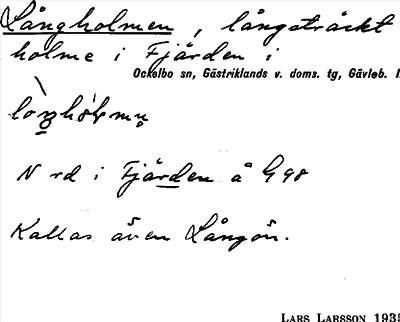 Långholmen, långsträckt
holme i Fjärden i
Ockelbo sn, Gästriklands v. doms. tg, Gävleb. l
N rd i Fjärden å G 98
Kallas även Långön.
LARS LARSSON 1935